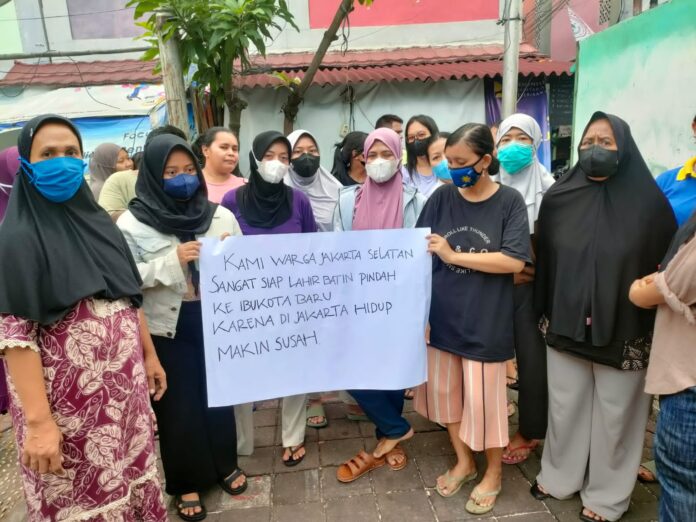 KAMI WARGA JAKARTA SELATAN
SANGAT SIAP LAHIR BATIN PINDAH
KE IBUKOTA BARU
KARENA DI JAKARTA HIDUP
MAKIN SUSAH